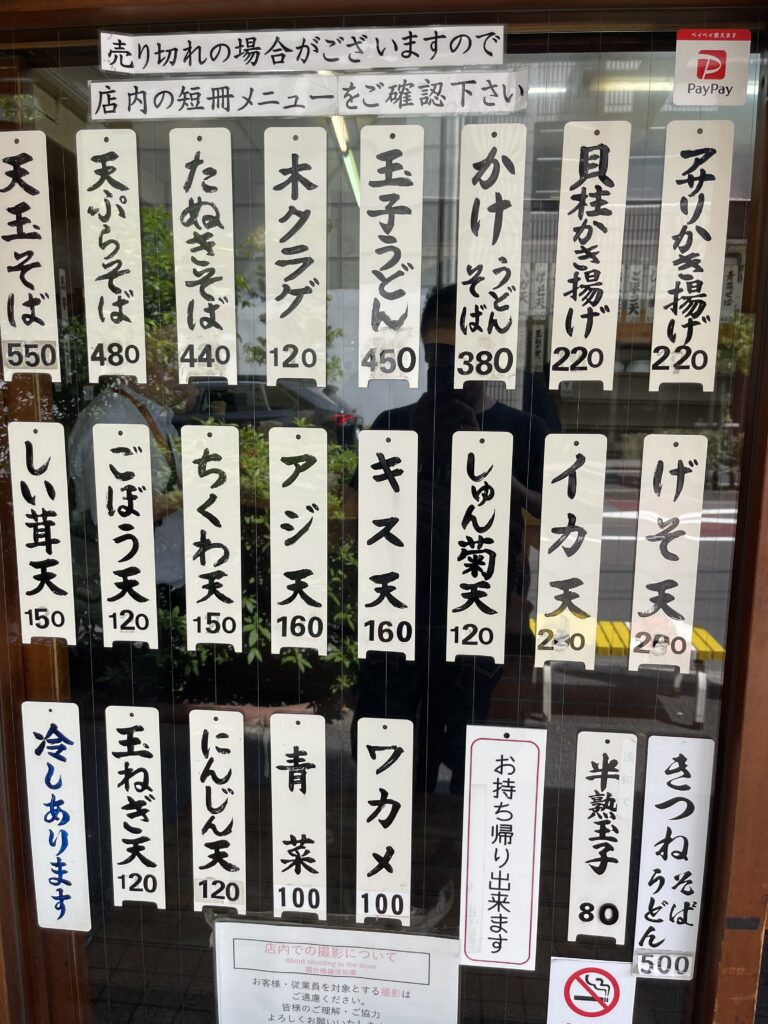 売り切れの場合がございますので
店内の短冊メニューをご確認下さい
ペイペイ使えます
PayPay
アサリかき揚げ
220
貝柱かき揚げ
220
かけうどんそば
380
玉子うどん
450
木クラゲ
120
たぬきそば
440
天ぷらそば
480
天玉そば
550
げそ天
イカ天
しゅん菊天
120
キス天
160
アジ天
160
ちくわ天
150
ごぼう天
120
しい茸天
150
きつねそばうどん
500
半熟玉子
80
お持ち帰り出来ます
ワカメ
100
青菜
100
にんじん天
120
玉ねぎ天
120
冷しあります
店内での撮影について
About shooting in the store
お客様・従業員を対象とする撮影は
ご遠慮ください。
皆様のご理解・ご協力
よろしくお願いいたします